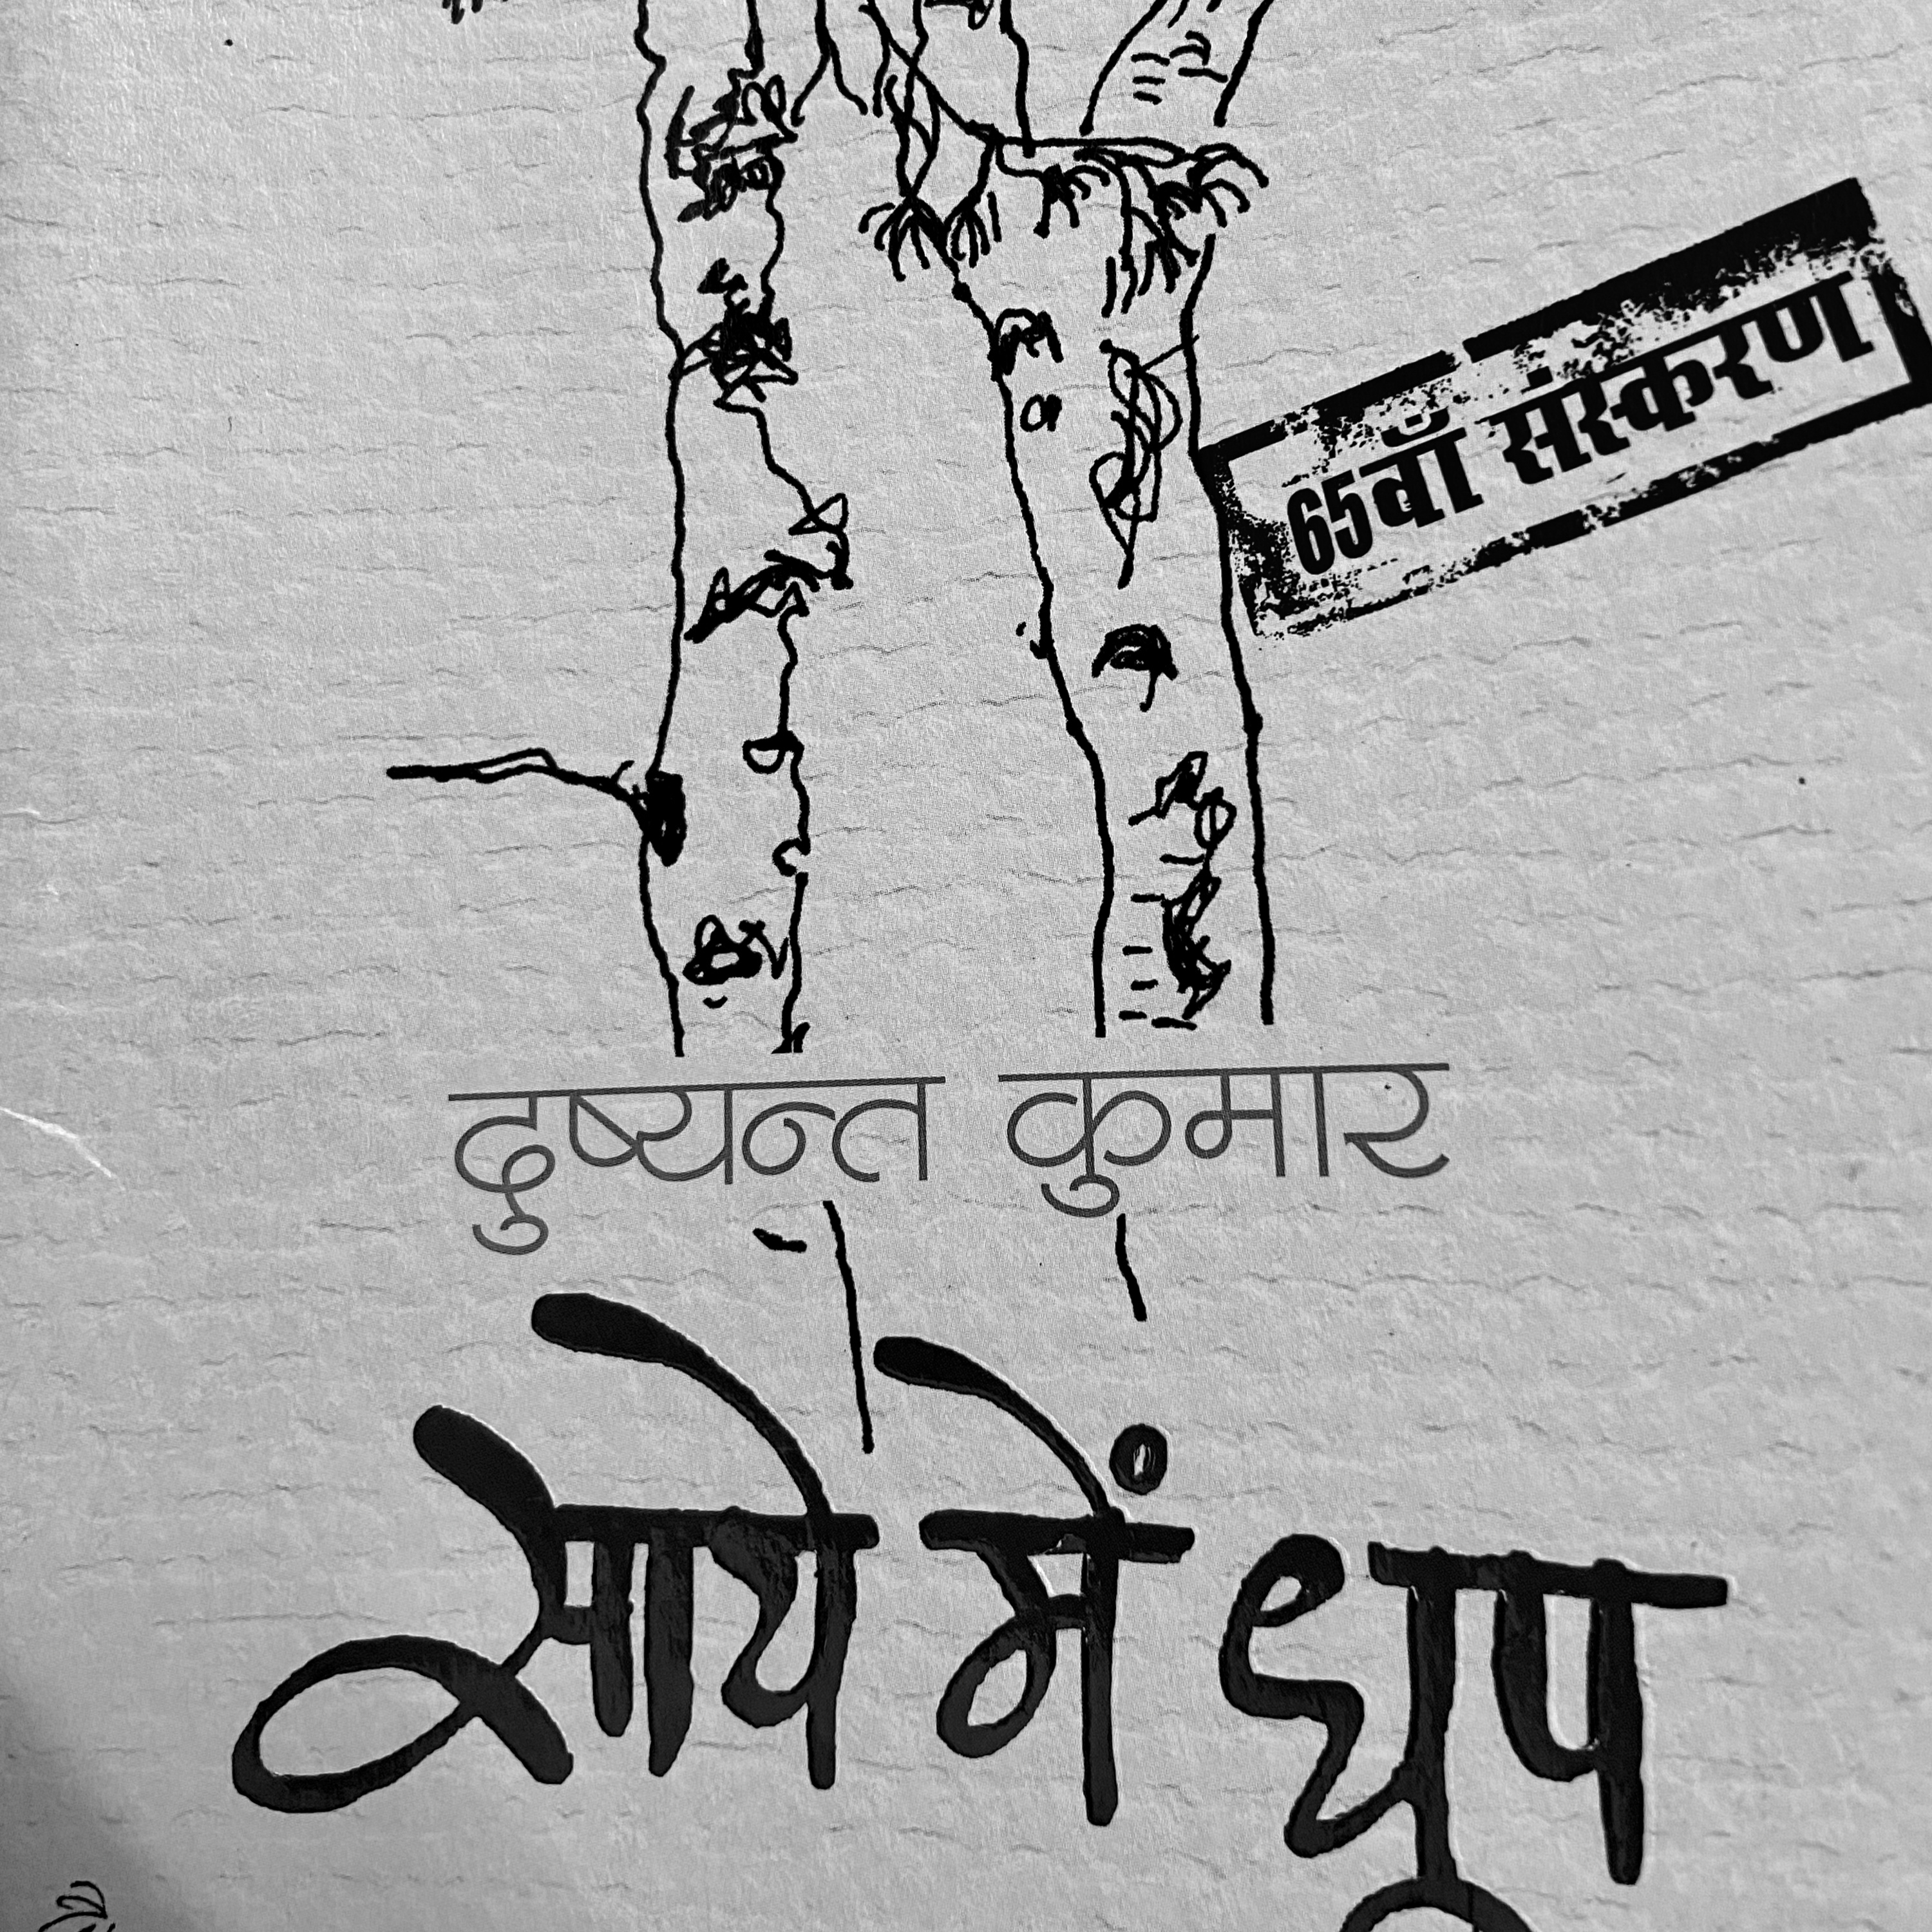 65वाँ संस्करण
दुष्यन्त कुमार
साये में धूप